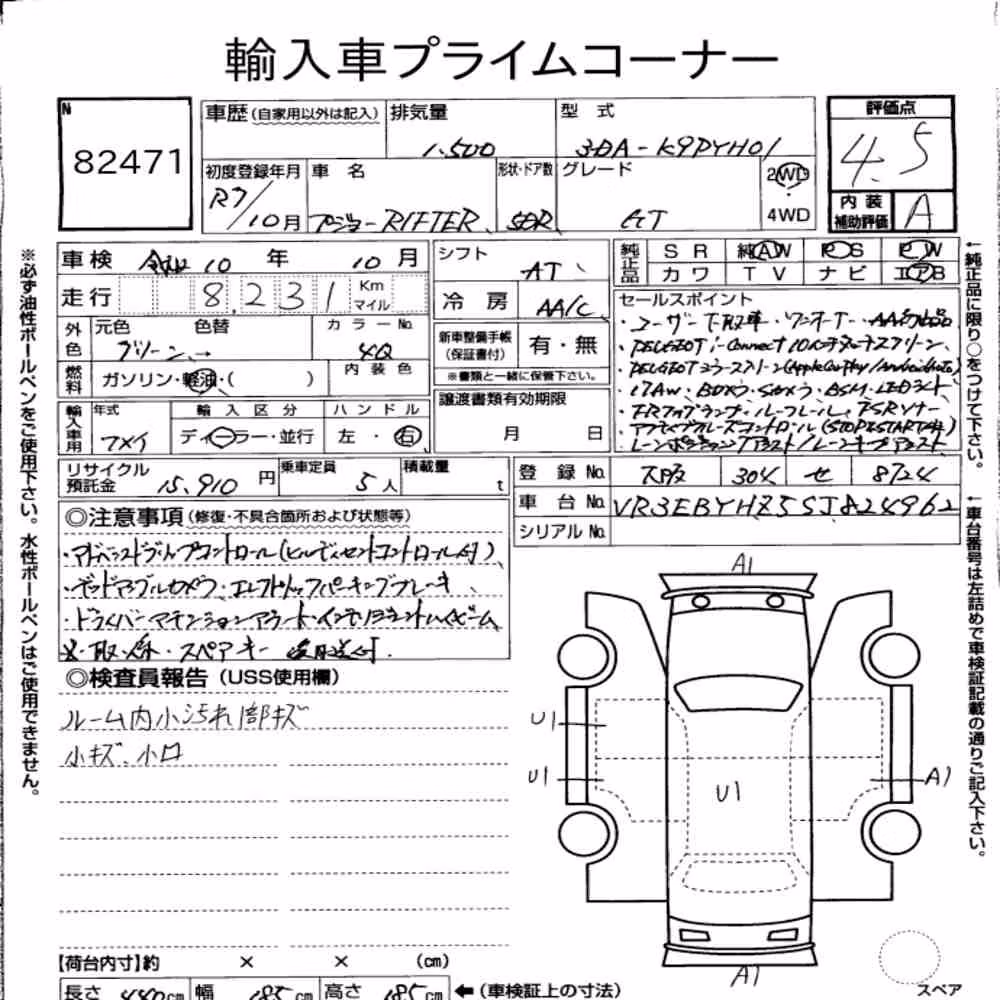 輸入車プライムコーナー
N
82471
車歴 (自家用以外は記入)
排気量
1.500
型式
3DA-K9PYH01
評価点
4.5
初度登録年月
R7/10月
車名
プジョー RIFTER
形状・ドア数
5DR
グレード
GT
2WD
4WD
内装補助評価
A
車検 令和10年 10月
シフト
AT
純正品
SR 純AW PS PW
カワ TV ナビ エアB
走行 8,231 Km マイル
冷房 AA/C
セールスポイント
・ユーザー下取車・ワンオーナー・AA初出品
・PEUGEOT i-Connect 10インチタッチスクリーン、
・PEUGEOT ミラースクリーン(Apple CarPlay/AndroidAuto)
・17AW・BDカメラ・SDカメラ・BSM・LEDライト
・FRフォグランプ・ルーフレール・FSRソナー
・アクティブクルーズコントロール(STOP&START付)
・レーンポジショニングアシスト/レーンキープアシスト
外色
元色 色替
グリーン →
カラーNo.
4Q
新車整備手帳
(保証書付)
有・無
※書類と一緒に保管下さい。
燃料
ガソリン・軽油・( )
内装色
譲渡書類有効期限
月 日
輸入車用
年式
フメイ
輸入区分
ディーラー・並行
ハンドル
左・右
リサイクル預託金
15,910円
乗車定員
5人
積載量
t
登録No. 大阪 304 せ 8724
車台No. VR3EBYHZ5SJ824962
シリアルNo.
◎注意事項 (修復・不具合箇所および状態等)
・アドバンスドグリップコントロール(ヒルディセントコントロール付)
・デッドアングルカメラ・エレクトリックパーキングブレーキ
・ドライバーアテンションアラート・インテリジェントハイビーム
※・取・保・スペアキー 後日送付.
◎検査員報告 (USS使用欄)
ルーム内小汚れ 部キズ
小キズ、小凹
A1
U1
U1
U1
A1
A1
【荷台内寸】約 × × (cm)
長さ 440cm 幅 185cm 高さ 185cm ←(車検証上の寸法)
スペア
※必ず油性ボールペンをご使用下さい。水性ボールペンはご使用できません。
←純正品に限り○をつけて下さい。
←車台番号は左詰めで車検証記載の通りご記入下さい。